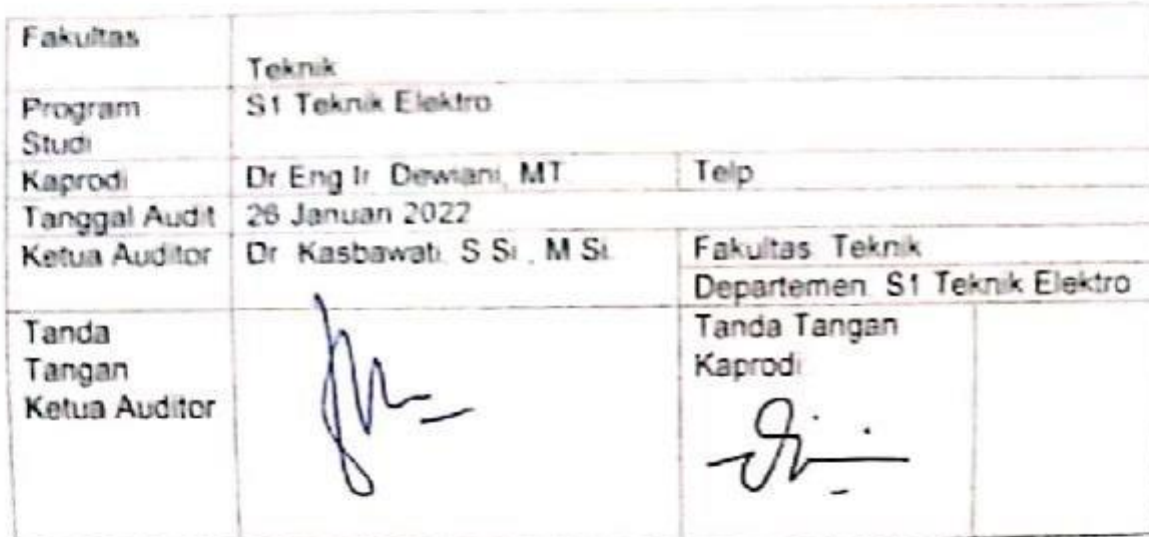 Fakultas
Teknik
Program
Studi
S1 Teknik Elektro
Kaprodi
Dr Eng Ir Dewiani, MT
Telp
Tanggal Audit
26 Januari 2022
Ketua Auditor
Dr Kasbawati, S Si., M Si.
Fakultas Teknik
Departemen S1 Teknik Elektro
Tanda
Tangan
Ketua Auditor
Tanda Tangan
Kaprodi